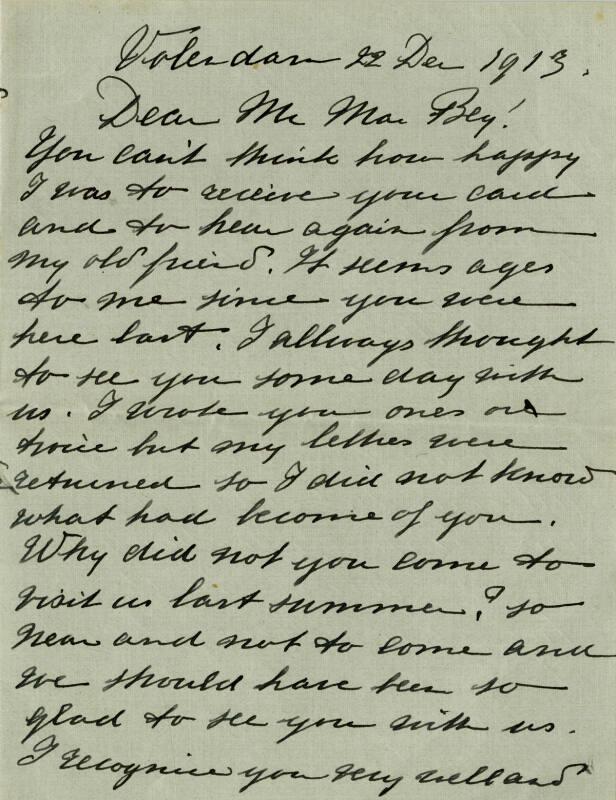 Volendam 22 Dec 1913.
Dear Mr Mac Bey!
You can't think how happy
I was to receive your card
and to hear again from
my old friend. It seems ages
to me since you were
here last. I allways thought
to see you some day with
us. I wrote you ones or
twice but my letters were
returned so I did not know
what had become of you.
Why did not you come to
visit us last summer? so
near and not to come and
we should have been so
glad to see you with us.
I recognice you very well and